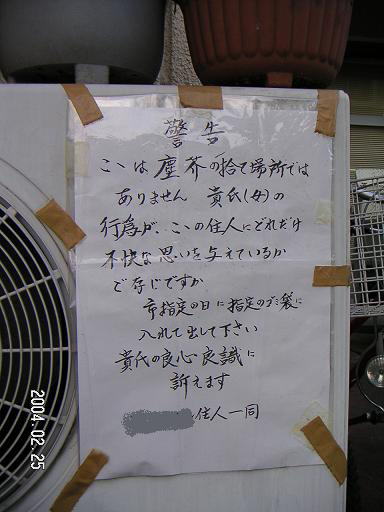 警告
ここは塵芥の捨て場所では
ありません 貴氏(女)の
行為が、ここの住人にどれだけ
不快な思いを与えているか
ご存じですか
市指定の日に指定のゴミ袋に
入れて出して下さい
貴氏の良心良識に
訴えます
住人一同
2004.02.25